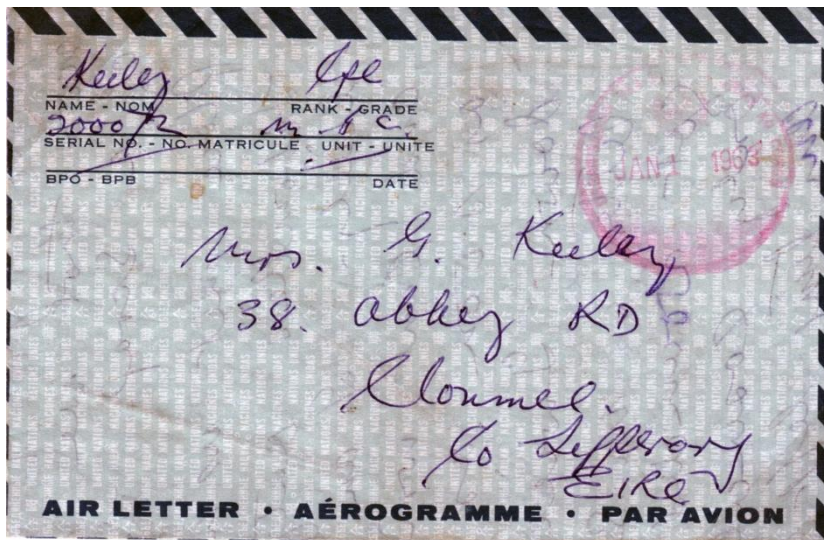 Keeley Cpl
NAME - NOM RANK - GRADE
SERIAL NO. - NO. MATRICULE UNIT - UNITE
BPO - BPB DATE
JAN 1 1963
Mrs. G. Keeley
38. Abbey RD
Clonmel.
Co Tipperary
EIRE
AIR LETTER • AÉROGRAMME • PAR AVION